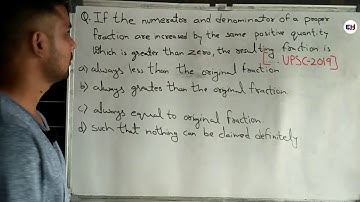 Q. If the numerator and denominator of a proper
fraction are increased by the same positive quantity
which is greater than zero, the resulting fraction is
[ UPSC-2019]
a) always less than the original fraction
b) always greater than the original fraction
c) always equal to original fraction
d) such that nothing can be claimed definitely